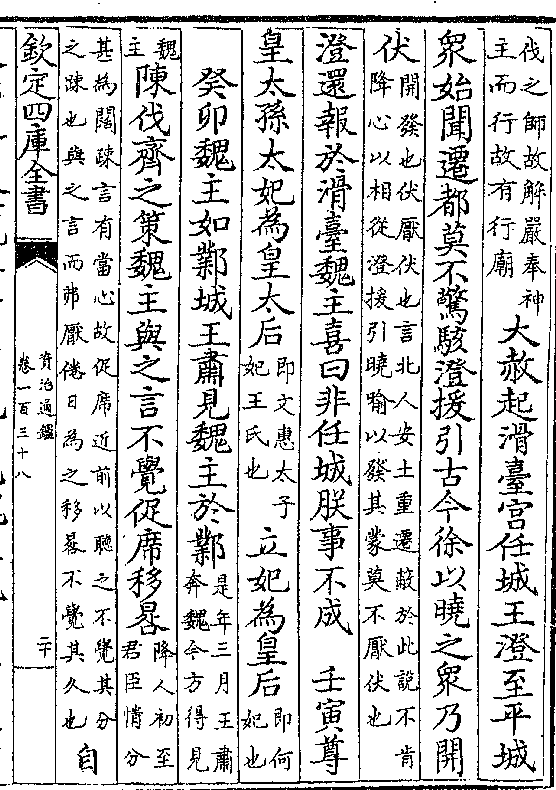 伐之師故解嚴奉神主而行故有行廟大赦起滑臺宮任城王澄至平城
衆始聞遷都莫不驚駭澄援引古今徐以曉之衆乃開
伏開發也伏厭伏也言北人安土重遷蔽於此說不肯降心以相從澄援引曉喻以發其蒙莫不厭伏也
澄還報於滑臺魏主喜曰非任城朕事不成 壬寅尊
皇太孫太妃為皇太后即文惠太子妃王氏也立妃為皇后即何妃也
癸卯魏主如鄴城王肅見魏主於鄴是年三月王肅奔魏今方得見
魏主陳伐齊之策魏主與之言不覺促席移晷降人初至君臣情分
甚為闊疎言有當心故促席近前以聽之不覺其分之疎也與之言而弗厭倦日為之移晷不覺其久也自
欽定四庫全書
資治通鑑
卷一百三十八
二十